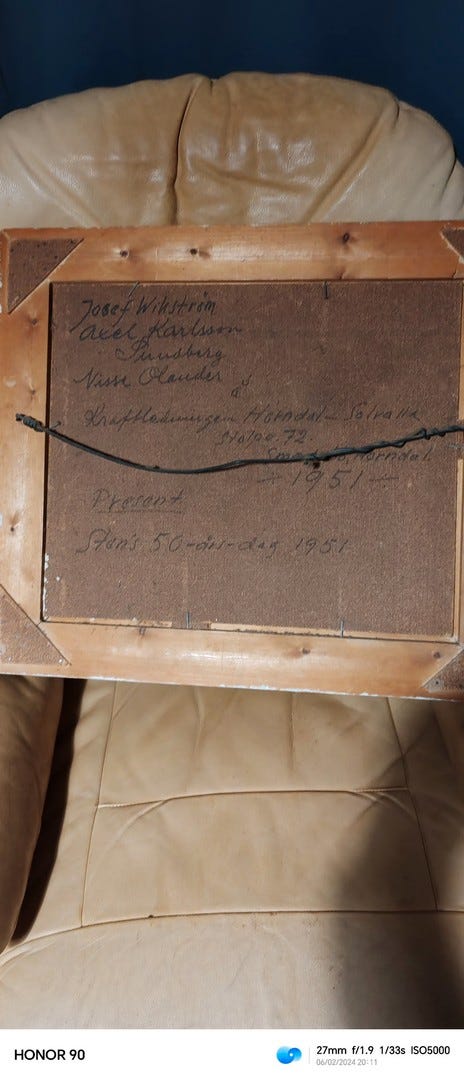 Josef Wikström
Axel Karlsson
Sundberg
Nisse Olander
Kraftledningen Horndal - Solvalla
Stolpe 72.
Horndal
- 1951 -
Present
Sten's 50-års-dag 1951
HONOR 90
27mm f/1.9 1/33s ISO5000
06/02/2024 20:11